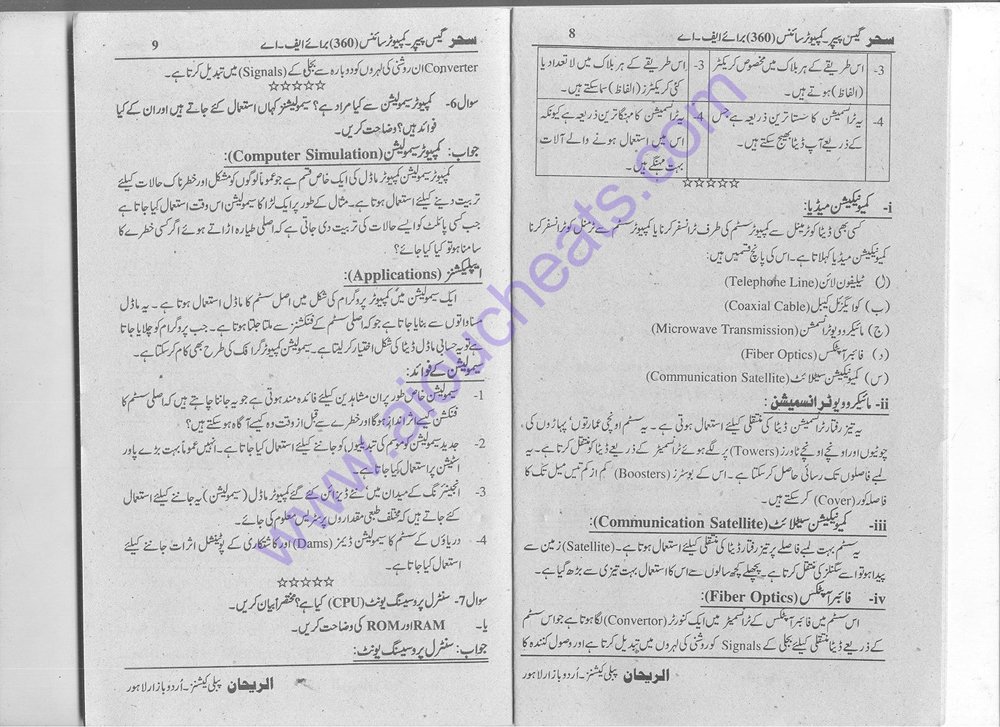 سحر گیس پیپر۔ کمپیوٹر سائنس (360) برائے ایف۔اے 8
3- اس طریقے کے ہر بلاک میں مخصوص کریکٹر (الفاظ) ہوتے ہیں۔
3- اس طریقے کے ہر بلاک میں لاتعداد یا کئی کریکٹرز (الفاظ) سما سکتے ہیں۔
4- یہ ٹرانسمیشن کا سستا ترین ذریعہ ہے جس کے ذریعے آپ ڈیٹا بھیج سکتے ہیں۔
4- یہ ٹرانسمیشن کا مہنگا ترین ذریعہ ہے کیونکہ اس میں استعمال ہونے والے آلات بہت مہنگے ہیں۔
☆☆☆☆☆
i- کمیونیکیشن میڈیا:
کسی بھی ڈیٹا کو ٹرمینل سے کمپیوٹر سسٹم کی طرف ٹرانسفر کرنا یا کمپیوٹر سسٹم سے ٹرمنل کو ٹرانسفر کرنا
کمیونیکیشن میڈیا کہلاتا ہے۔ اس کی پانچ قسمیں ہیں:
(ا) ٹیلیفون لائن (Telephone Line)
(ب) کوایگزئل کیبل (Coaxial Cable)
(ج) مائیکرو ویو ٹرانسمشن (Microwave Transmission)
(د) فائبر آپٹکس (Fiber Optics)
(س) کمیونیکیشن سیٹلائٹ (Communication Satellite)
ii- مائیکرو ویو ٹرانسمیشن:
یہ تیز رفتار ٹرانسمیشن ڈیٹا کی منتقلی کیلئے استعمال ہوتی ہے۔ یہ سسٹم اونچی عمارتوں، پہاڑوں کی،
چوٹیوں اور اونچے اونچے ٹاورز (Towers) پر لگے ہوئے ٹرانسمیٹر کے ذریعے ڈیٹا کو منتقل کرتا ہے۔ یہ
لمبے فاصلوں تک رسائی حاصل کر سکتا ہے۔ اس کے بوسٹرز (Boosters) کم از کم تیس میل تک کا
فاصلہ کور (Cover) کر سکتے ہیں۔
iii- کمیونیکیشن سیٹلائٹ (Communication Satellite):
یہ سسٹم بہت لمبے فاصلے پر تیز رفتار ڈیٹا کی منتقلی کیلئے استعمال ہوتا ہے۔ (Satellite) زمین سے
پیدا ہوتو اسے سگنلز کی منتقل کرتا ہے۔ پچھلے کچھ سالوں سے اس کا استعمال بہت تیزی سے بڑھ گیا ہے۔
iv- فائبر آپٹکس (Fiber Optics):
اس سسٹم میں فائبر آپٹکس کے ٹرانسمیٹر میں ایک کنورٹر (Convertor) لگا ہوتا ہے جو اس سسٹم
کے ذریعے ڈیٹا منتقلی کیلئے بجلی کے Signals کو روشنی کی لہروں میں تبدیل کرتا ہے اور وصول کنندہ کا
الریحان پبلی کیشنز۔ اُردو بازار لاہور
سحر گیس پیپر۔ کمپیوٹر سائنس (360) برائے ایف۔اے 9
Converter ان روشنی کی لہروں کو دوبارہ سے بجلی کے (Signals) میں تبدیل کرتا ہے۔
☆☆☆☆☆
سوال 6- کمپیوٹر سیمولیشن سے کیا مراد ہے؟ سیمولیشنز کہاں استعمال کئے جاتے ہیں اور ان کے کیا
فوائد ہیں؟ وضاحت کریں۔
جواب: کمپیوٹر سیمولیشن (Computer Simulation):
کمپیوٹر سیمولیشن کمپیوٹر ماڈل کی ایک خاص قسم ہے جو عموماً لوگوں کو مشکل اور خطرناک حالات کیلئے
تربیت دینے کیلئے استعمال ہوتا ہے۔ مثال کے طور پر ایک لڑاکا سیمولیشن اس وقت استعمال کیا جاتا ہے
جب کسی پائلٹ کو ایسے حالات کی تربیت دی جاتی ہے کہ اصلی طیارہ اڑاتے ہوئے اگر کسی خطرے کا
سامنا ہو تو کیا کیا جائے؟
اپیلیکیشنز (Applications):
ایک سیمولیشن میں کمپیوٹر پروگرام کی شکل میں اصل سسٹم کا ماڈل استعمال ہوتا ہے۔ یہ ماڈل
مساواتوں سے بنایا جاتا ہے جو کہ اصلی سسٹم کے فنکشنز سے ملتا جلتا ہوتا ہے۔ جب پروگرام کو چلایا جاتا
ہے تو یہ حسابی ماڈل ڈیٹا کی شکل اختیار کر لیتا ہے۔ سیمولیشن کمپیوٹر گرافک کی طرح بھی کام کر سکتا ہے۔
سیمولیشن کے فوائد:
1- سیمولیشن خاص طور پر ان مشاہدین کیلئے فائدہ مند ہوتی ہے جو یہ جاننا چاہتے ہیں کہ اصلی سسٹم کا
فنکشن کیسے اثر انداز ہوگا اور خطرے سے قبل از وقت وہ کیسے آگاہ ہو سکتے ہیں؟
2- جدید سیمولیشن کو موسم کی تبدیلیوں کو جاننے کیلئے استعمال کیا جاتا ہے۔ انہیں عموماً بہت بڑے پاور
اسٹیشن پر استعمال کیا جاتا ہے۔
3- انجینئرنگ کے میدان میں نئے ڈیزائن کئے گئے کمپیوٹر ماڈل (سیمولیشن) یہ جاننے کیلئے استعمال
کئے جاتے ہیں کہ مختلف طبعی مقداروں پر سٹریس معلوم کی جائے۔
4- دریاؤں کے سسٹم کا سیمولیشن ڈیمز (Dams) اور کاشتکاری کے پوٹینشل اثرات جاننے کیلئے
استعمال کیا جاتا ہے۔
☆☆☆☆☆
سوال 7- سنٹرل پروسیسنگ یونٹ (CPU) کیا ہے؟ مختصراً بیان کریں۔
یا۔ RAM اور ROM کی وضاحت کریں۔
جواب: سنٹرل پروسیسنگ یونٹ:
الریحان پبلی کیشنز۔ اُردو بازار لاہور
www.aioucheats.com